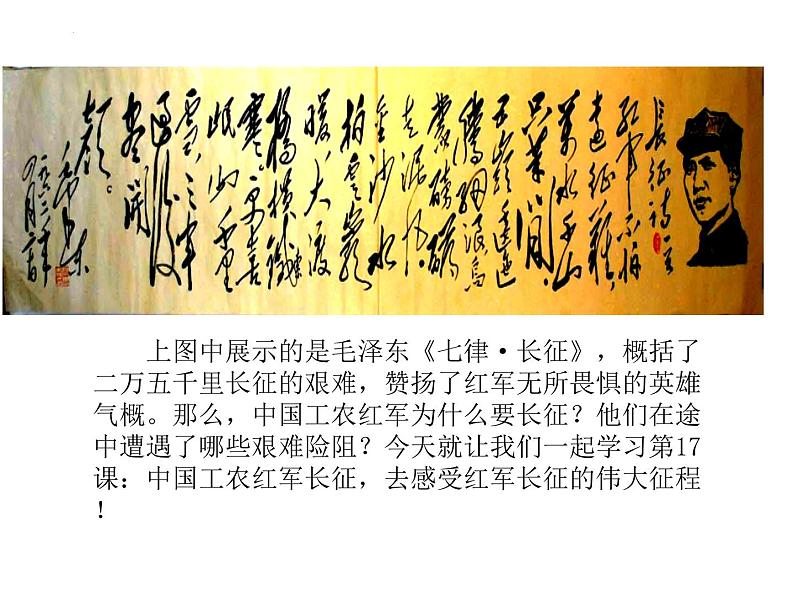 长征诗一首
红军不怕
远征难,
万水千山
只等闲。
五岭逶迤
腾细浪,乌
蒙磅礴
走泥丸。
金沙水
拍云崖
暖,大渡
桥横铁索
寒。更喜
岷山千里
雪,三军
过后
尽开
颜。
毛泽东
一九六二年
上图中展示的是毛泽东《七律·长征》，概括了
二万五千里长征的艰难，赞扬了红军无所畏惧的英雄
气概。那么，中国工农红军为什么要长征？他们在途
中遭遇了哪些艰难险阻？今天就让我们一起学习第17
课：中国工农红军长征，去感受红军长征的伟大征程
！